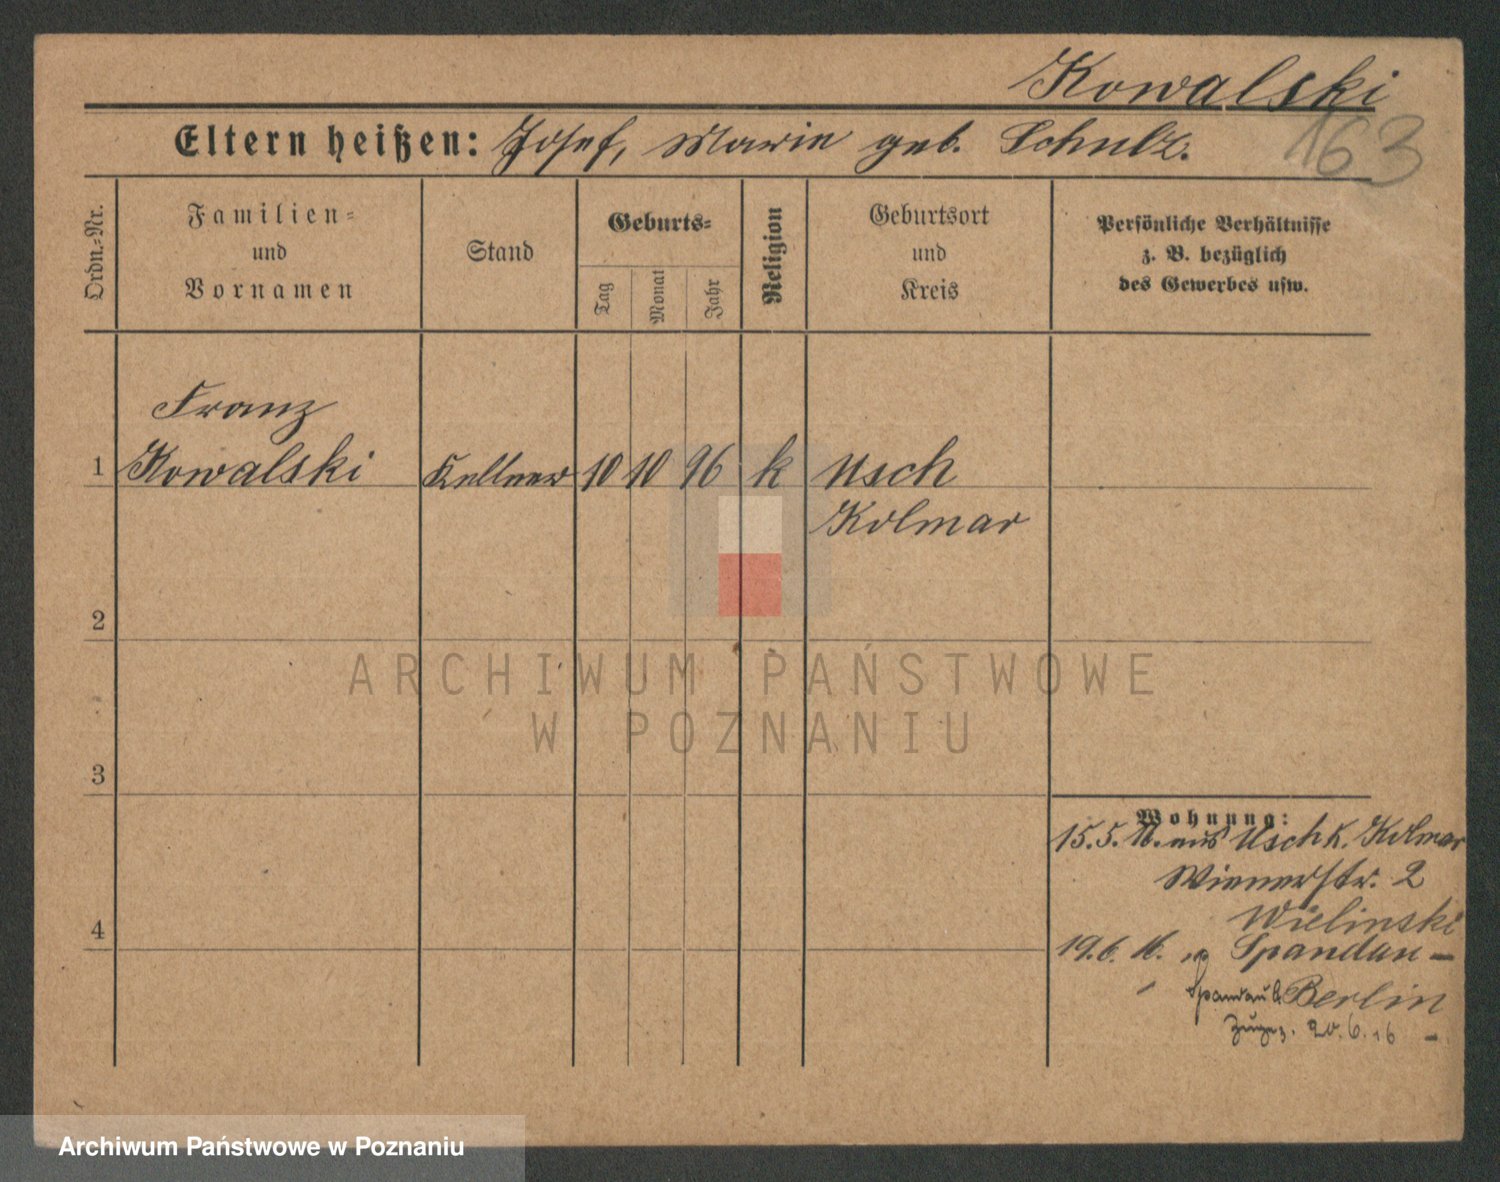 Kowalski
163
Eltern heißen: Josef, Marie geb. Schulz.
Ordn.-Nr.
Familien-
und
Vornamen
Stand
Geburts-
Tag
Monat
Jahr
Religion
Geburtsort
und
Kreis
Persönliche Verhältnisse
z. B. bezüglich
des Gewerbes usw.
Franz
1 Kowalski Kellner 10 10 96 k Usch
Kolmar
2
ARCHIWUM PAŃSTWOWE
W POZNANIU
3
Wohnung:
15.5.16. aus Usch K. Kolmar
Wienerstr. 2
Wielinski
4
19.6.16. Spandau -
Spandau b. Berlin
Zugez. 20.6.16 -
Archiwum Państwowe w Poznaniu